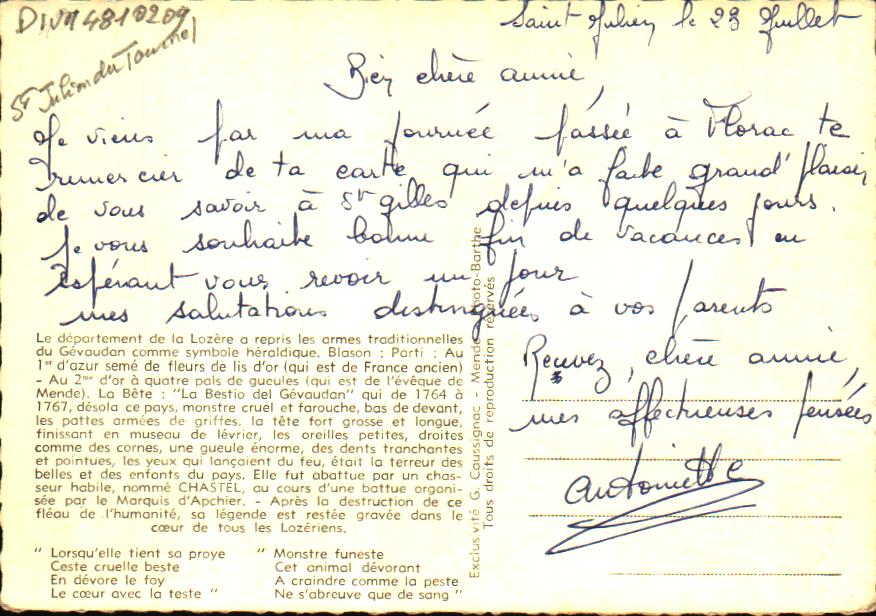 DIVN4810209
St Julien du Tournel
Saint Julien le 23 Juillet
Bien chère annie,
Je viens par ma journée passée à Florac te
remercier de ta carte qui m'a faite grand' plaisir
de vous savoir à St gilles depuis quelques jours.
Je vous souhaite bonne fin de vacances, en
Espérant vous revoir un jour
mes salutations distinguées à vos parents
Recevez, chère annie,
mes affectueuses pensées
Antoinette
Le département de la Lozère a repris les armes traditionnelles
du Gévaudan comme symbole héraldique. Blason : Parti : Au
1er d'azur semé de fleurs de lis d'or (qui est de France ancien)
- Au 2me d'or à quatre pals de gueules (qui est de l'évêque de
Mende). La Bête : "La Bestio del Gévaudan" qui de 1764 à
1767, désola ce pays, monstre cruel et farouche, bas de devant,
les pattes armées de griffes, la tête fort grosse et longue,
finissant en museau de lévrier, les oreilles petites, droites
comme des cornes, une gueule énorme, des dents tranchantes
et pointues, les yeux qui lançaient du feu, était la terreur des
belles et des enfants du pays. Elle fut abattue par un chas-
seur habile, nommé CHASTEL, au cours d'une battue organi-
sée par le Marquis d'Apchier. - Après la destruction de ce
fléau de l'humanité, sa légende est restée gravée dans le
cœur de tous les Lozériens.
" Lorsqu'elle tient sa proye
Ceste cruelle beste
En dévore le foy
Le cœur avec la teste "
" Monstre funeste
Cet animal dévorant
A craindre comme la peste
Ne s'abreuve que de sang "
Exclusivité G. Caussignac - Mende Photo-Barthe
Tous droits de reproduction réservés